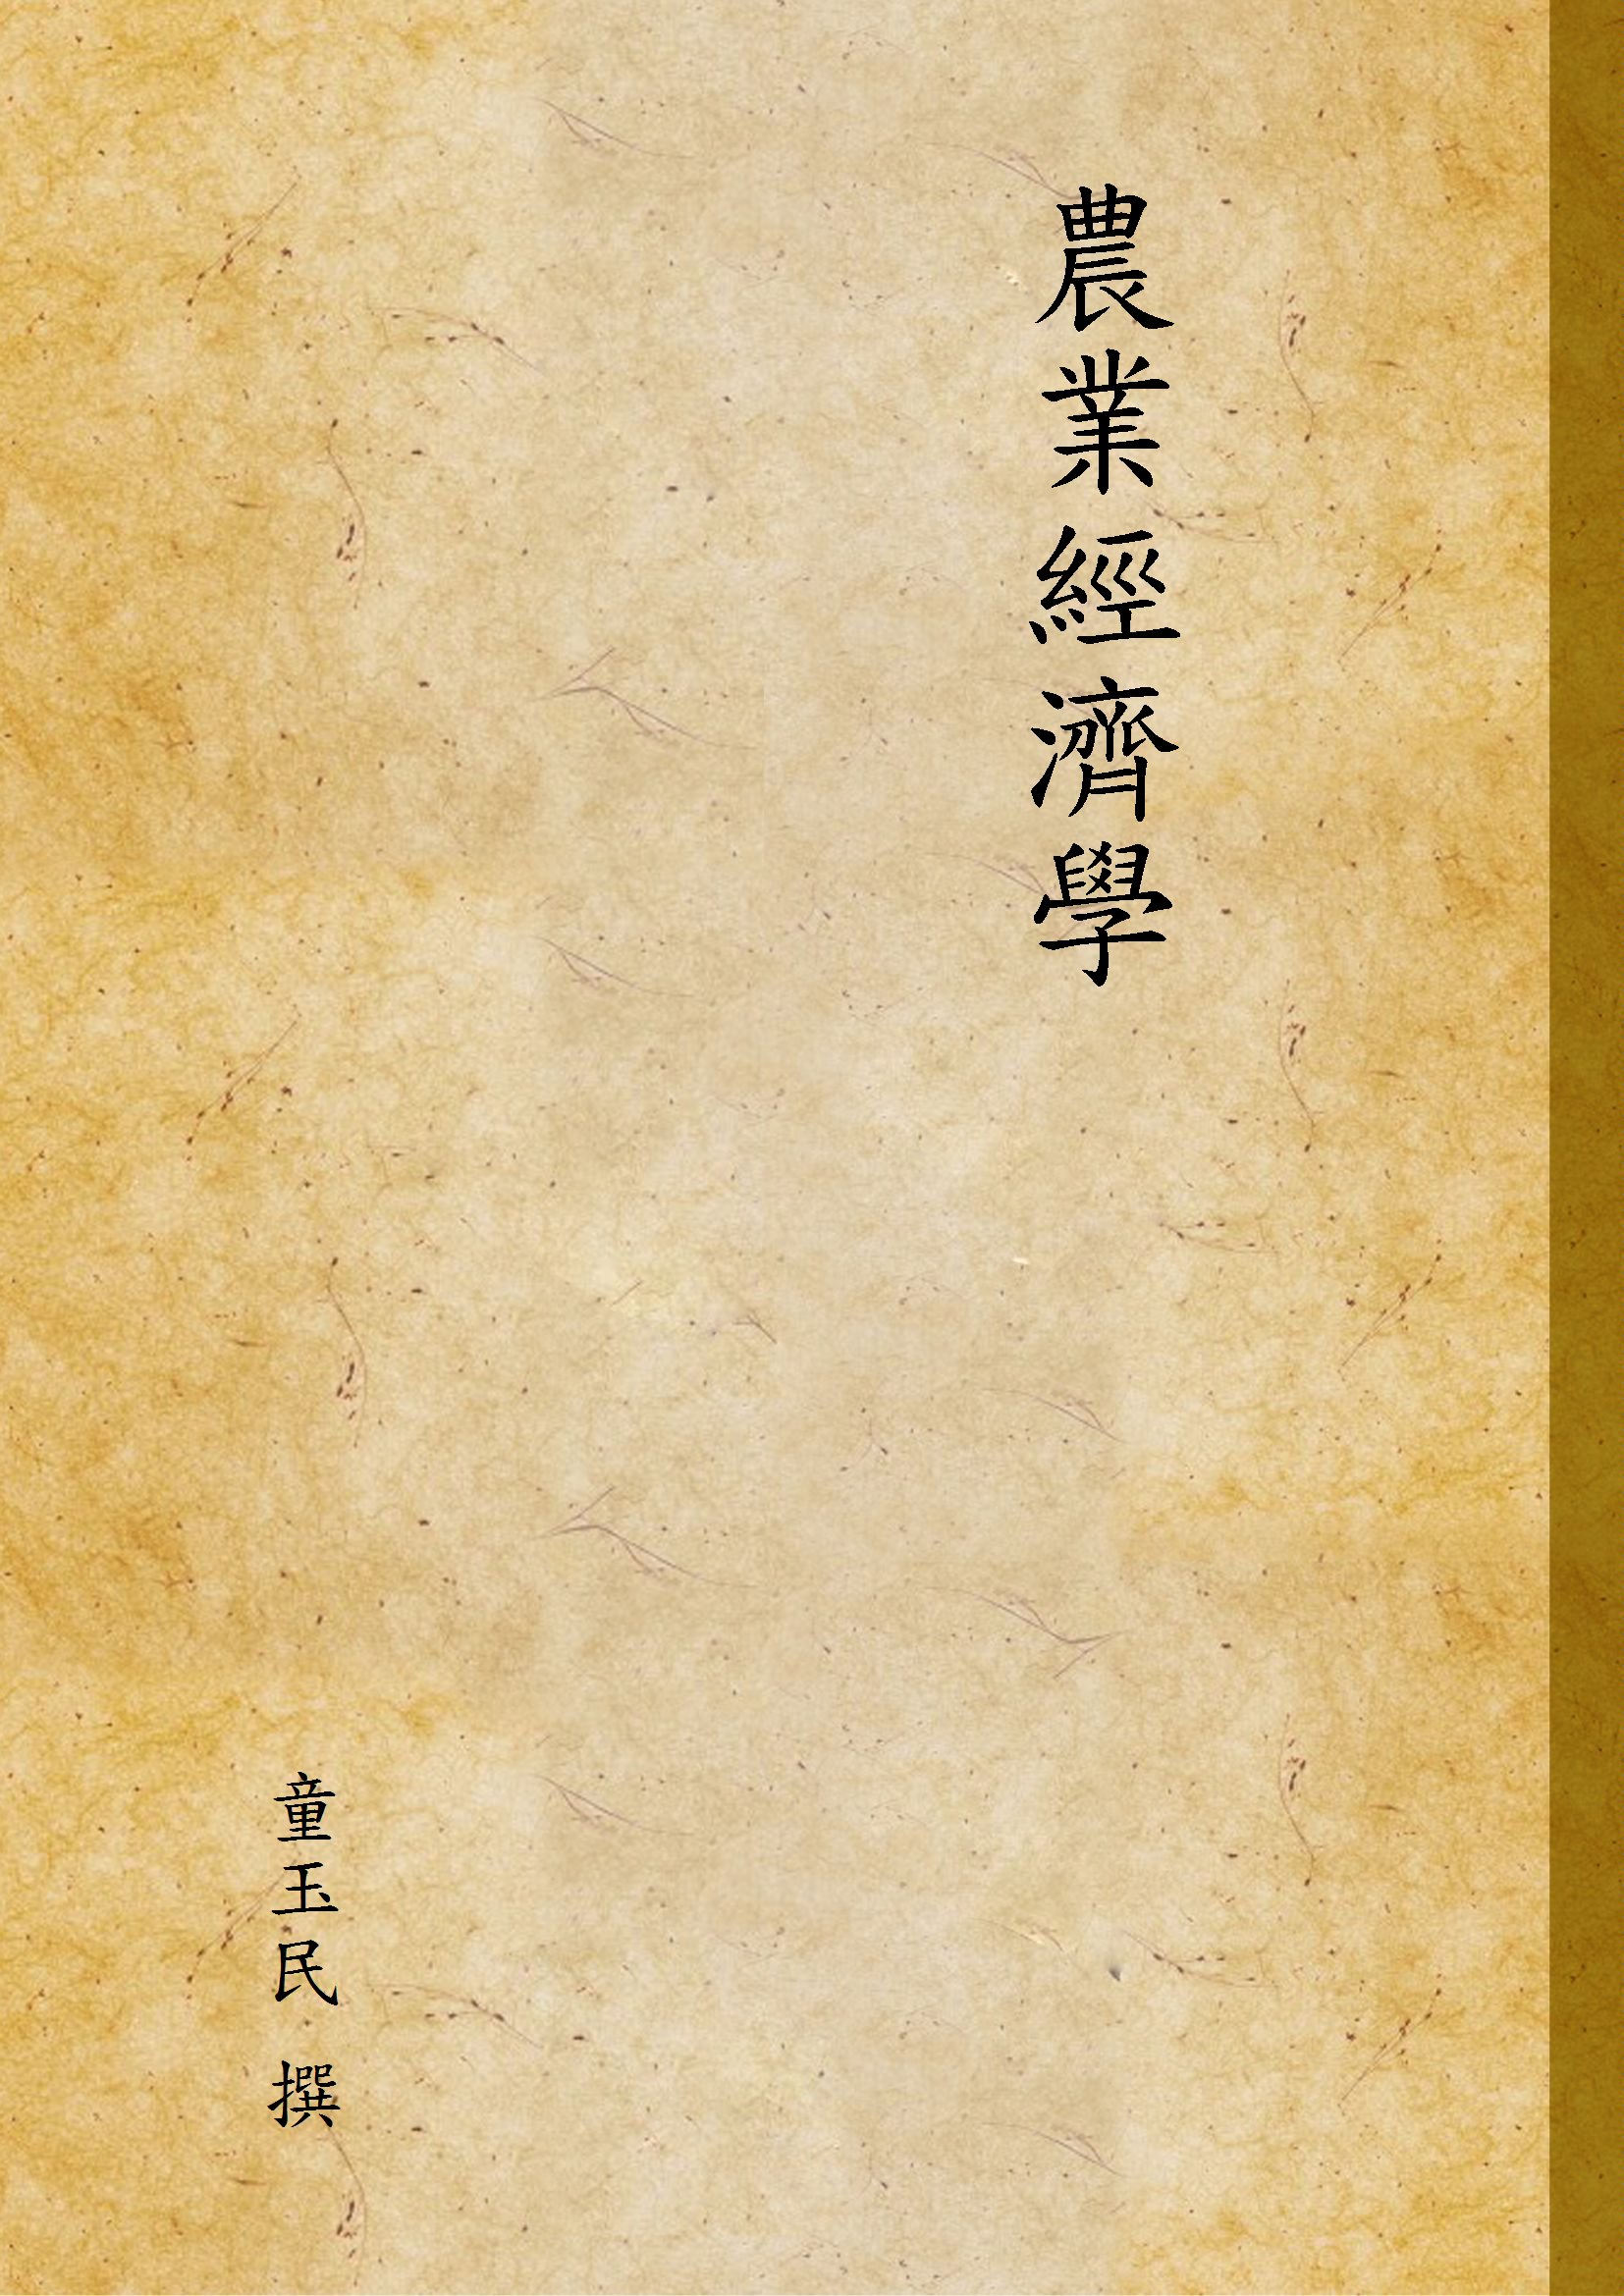 農業經濟學
童玉民 撰